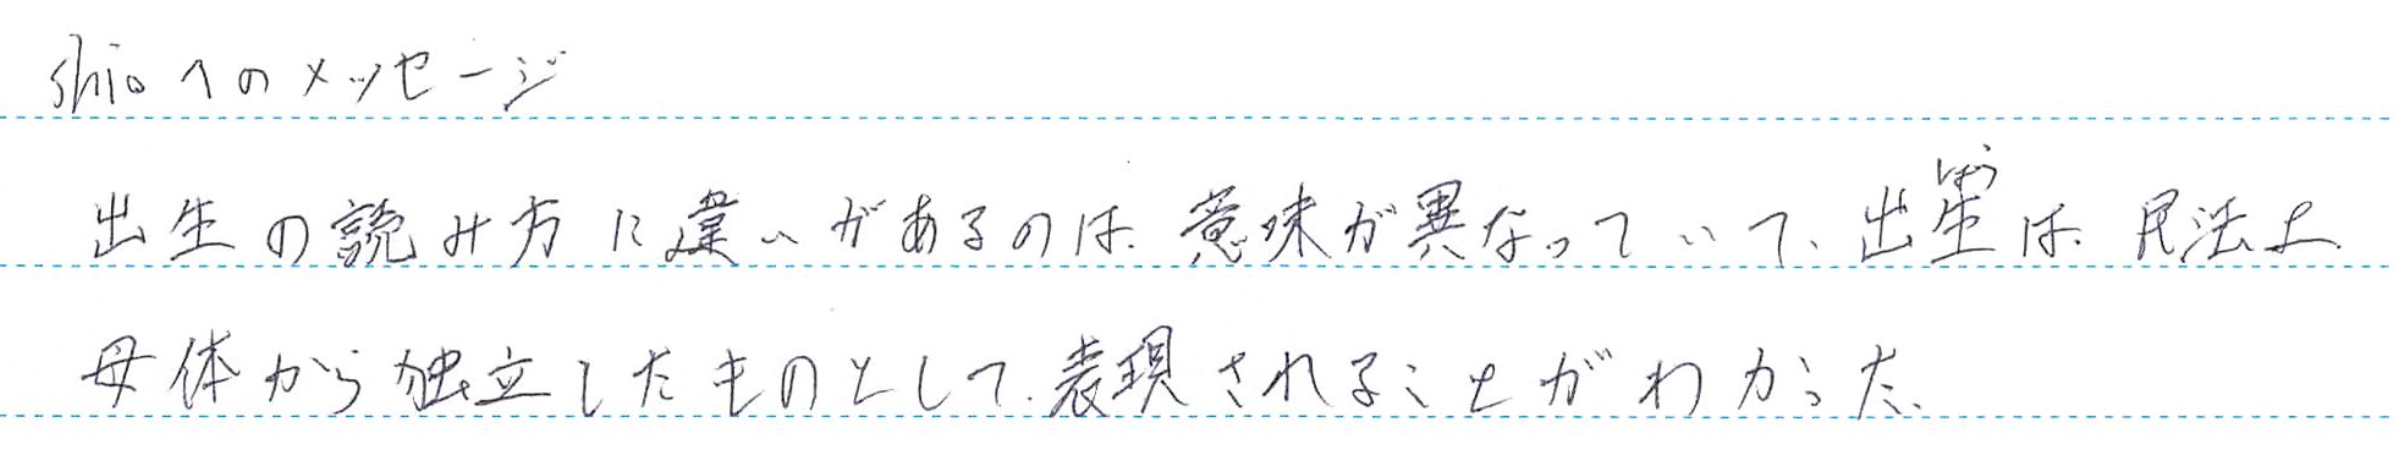 shioへのメッセージ
出生の読み方に違いがあるのは、意味が異なっていて、出生は、民法上
しょう
母体から独立したものとして、表現されることがわかった。